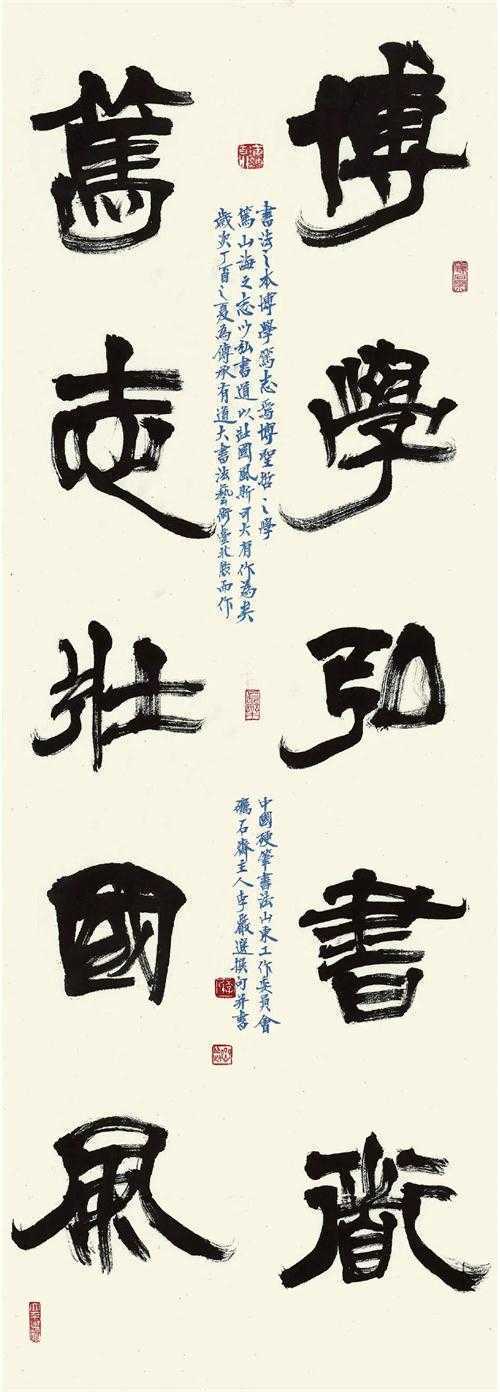 博學弘書衜
書法之本博學篤志焉博聖哲之學
篤山海之志以弘書道以壯國風斯可大有作為矣
歲次丁酉之夏為傳承有道大書法藝術臺北展而作
中國硬筆書法山東工作委員會
礪石齋主人李嚴選撰句并書
篤志壯國風